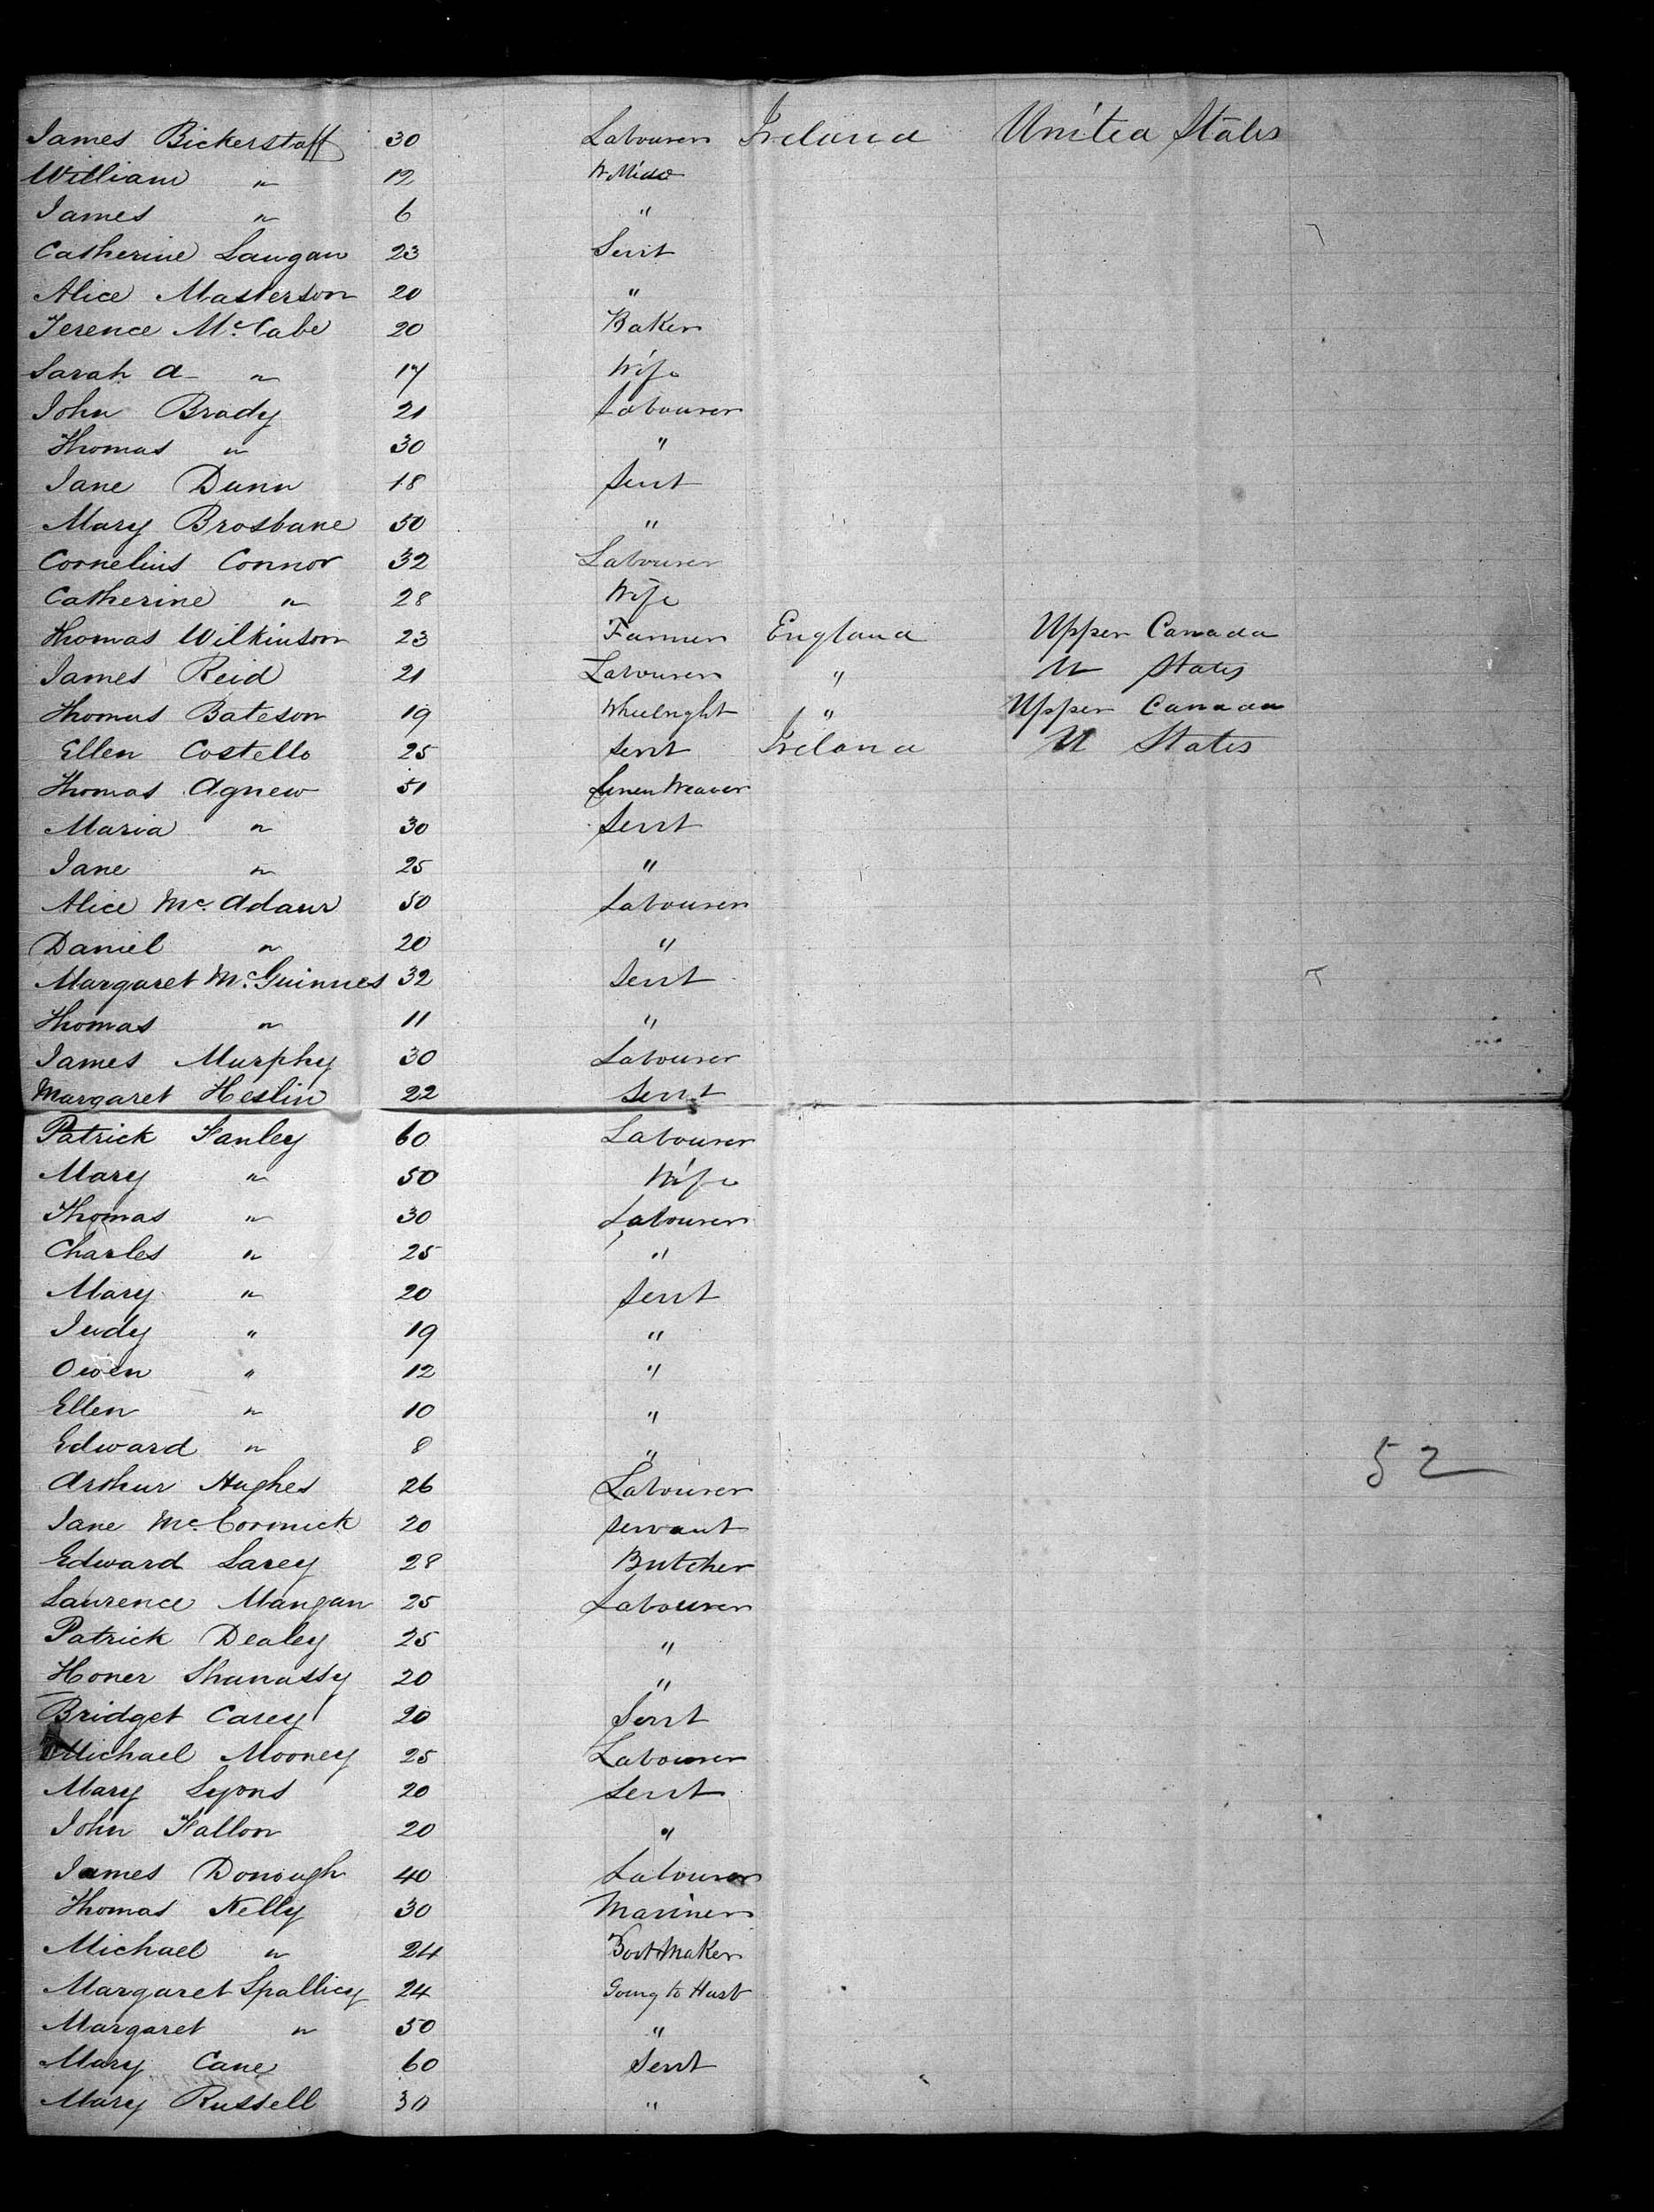 James Bickerstaff 30 Labourer Ireland United States
William " 12
James " 6 "
Catherine Langan 23 Servt
Alice Masterson 20 "
Terence McCabe 20 Baker
Sarah A " 17 Wife
John Brady 21 Labourer
Thomas " 30 "
Jane Dunn 18 Servt
Mary Brosbane 50 "
Cornelius Connor 32 Labourer
Catherine " 28 Wife
Thomas Wilkinson 23 Farmer England Upper Canada
James Reid 21 Labourer " U States
Thomas Bateson 19 Wheelright " Upper Canada
Ellen Costello 25 Servt Ireland U States
Thomas Agnew 51 Linen Weaver
Maria " 30 Servt
Jane " 25 "
Alice McAdam 50 Labourer
Daniel " 20 "
Margaret McGuinnes 32 Servt
Thomas " 11 "
James Murphy 30 Labourer
Margaret Heslin 22 Servt
Patrick Fanley 60 Labourer
Mary " 50 Wife
Thomas " 30 Labourer
Charles " 25 "
Mary " 20 Servt
Judy " 19 "
Owen " 12 "
Ellen " 10 "
Edward " 8 "
52
Arthur Hughes 26 Labourer
Jane McCormick 20 Servant
Edward Larey 28 Butcher
Laurence Mangan 25 Labourer
Patrick Dealey 25 "
Honer Shanassy 20 "
Bridget Carey 20 Servt
Michael Mooney 25 Labourer
Mary Lyons 20 Servt
John Fallon 20 "
James Donough 40 Labourer
Thomas Kelly 30 Mariner
Michael " 24 Bootmaker
Margaret Spallicy 24 Going to Husb
Margaret " 50 "
Mary Cane 60 Servt
Mary Russell 30 "